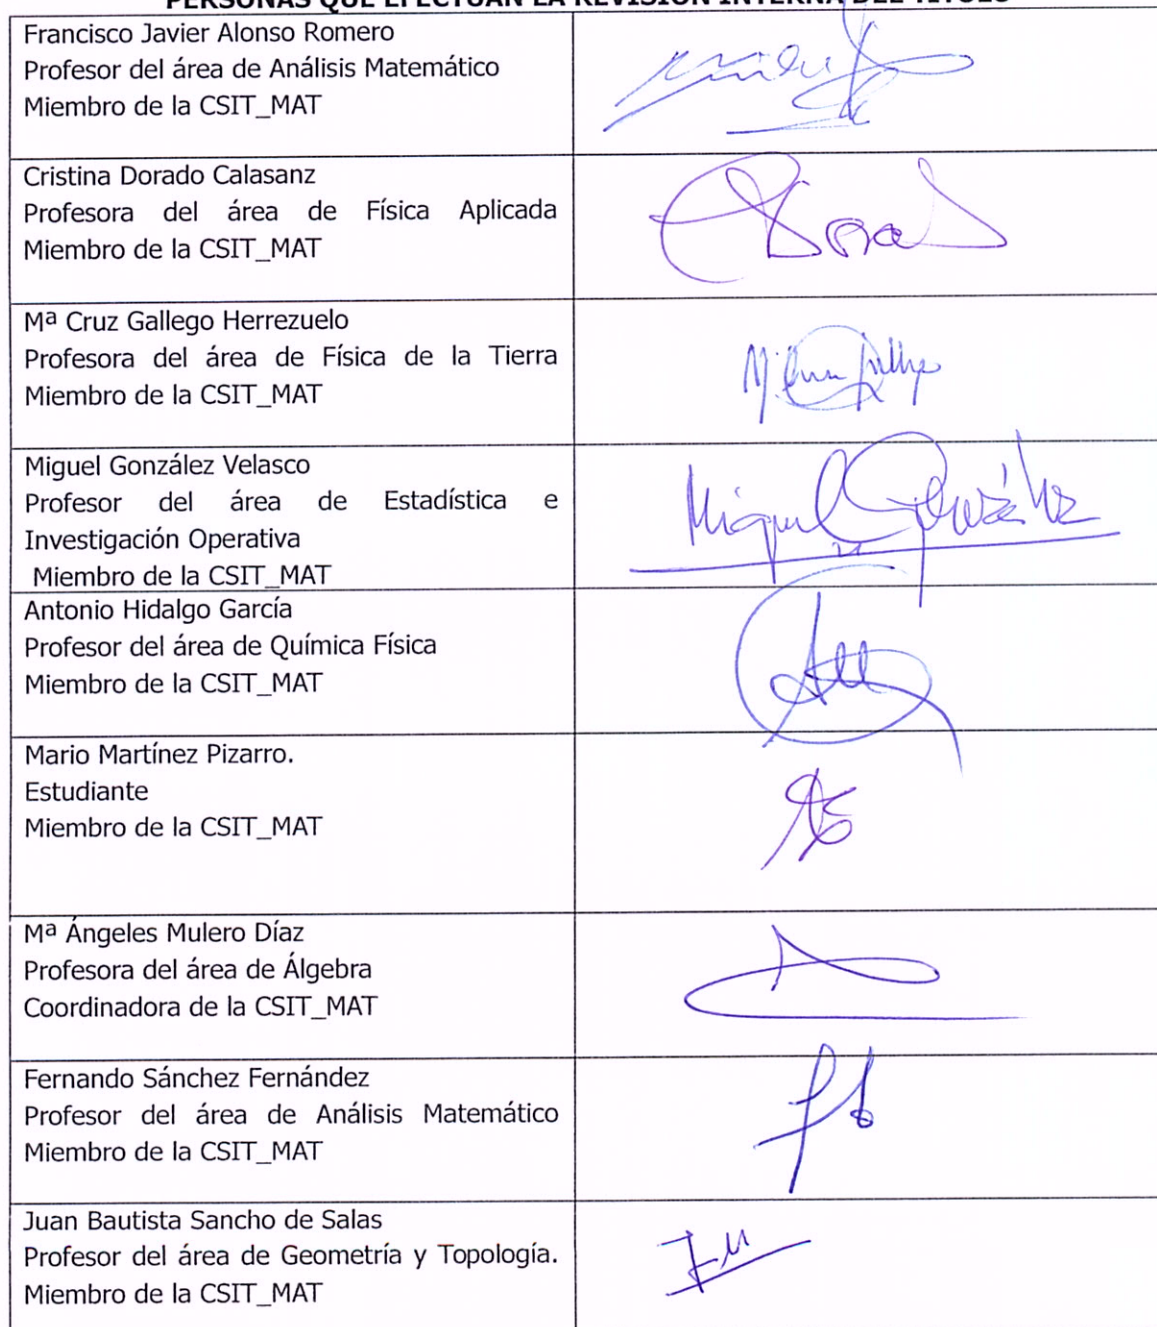 PERSONAS QUE EFECTÚAN LA REVISIÓN INTERNA DEL TÍTULO
Francisco Javier Alonso Romero
Profesor del área de Análisis Matemático
Miembro de la CSIT_MAT
Cristina Dorado Calasanz
Profesora del área de Física Aplicada
Miembro de la CSIT_MAT
Mª Cruz Gallego Herrezuelo
Profesora del área de Física de la Tierra
Miembro de la CSIT_MAT
Miguel González Velasco
Profesor del área de Estadística e
Investigación Operativa
Miembro de la CSIT_MAT
Miguel González
Antonio Hidalgo García
Profesor del área de Química Física
Miembro de la CSIT_MAT
Mario Martínez Pizarro.
Estudiante
Miembro de la CSIT_MAT
Mª Ángeles Mulero Díaz
Profesora del área de Álgebra
Coordinadora de la CSIT_MAT
Fernando Sánchez Fernández
Profesor del área de Análisis Matemático
Miembro de la CSIT_MAT
Juan Bautista Sancho de Salas
Profesor del área de Geometría y Topología.
Miembro de la CSIT_MAT